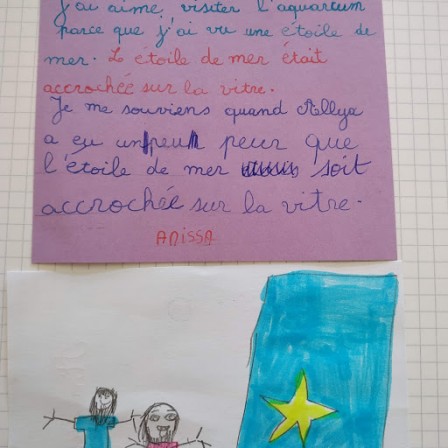 j'ai aimé visiter l'aquarium
parce que j'ai vu une étoile de
mer. L'étoile de mer était
accrochée sur la vitre.
Je me souviens quand Aellya
a eu un peu peur que
l'étoile de mer soit
accrochée sur la vitre.
Anissa